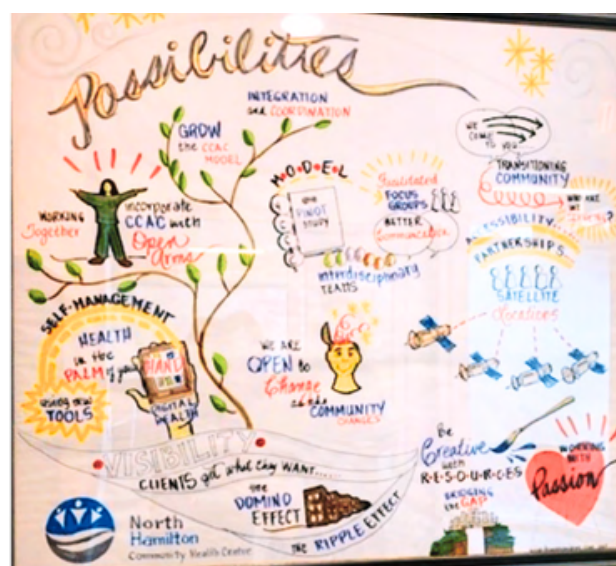 Possibilities
INTEGRATION
and COORDINATION
GROW
the CCAC
MODEL
WORKING
Together
incorporate
CCAC with
Open
Arms
M·O·D·E·L
the
PIVOT
Study
Facilitated
FOCUS
GROUPS
BETTER
Communication
interdisciplinary
TEAMS
WE
COME
TO YOU...
TRANSITIONING
COMMUNITY
WHO ARE
WE
ACCESSIBILITY...
PARTNERSHIPS...
SATELLITE
Locations
SELF-MANAGEMENT
HEALTH
in the
PALM of your
HAND
using new
TOOLS
DIGITAL
HEALTH
WE ARE
OPEN to
Change
as the
COMMUNITY
CHANGES
VISIBILITY
CLIENTS get what they WANT....
the
DOMINO
EFFECT
the RIPPLE EFFECT
Be
Creative
with
R·E·S·O·U·R·C·E·S
BRIDGING
the GAP
WORKING
WITH
Passion
North
Hamilton
Community Health Centre